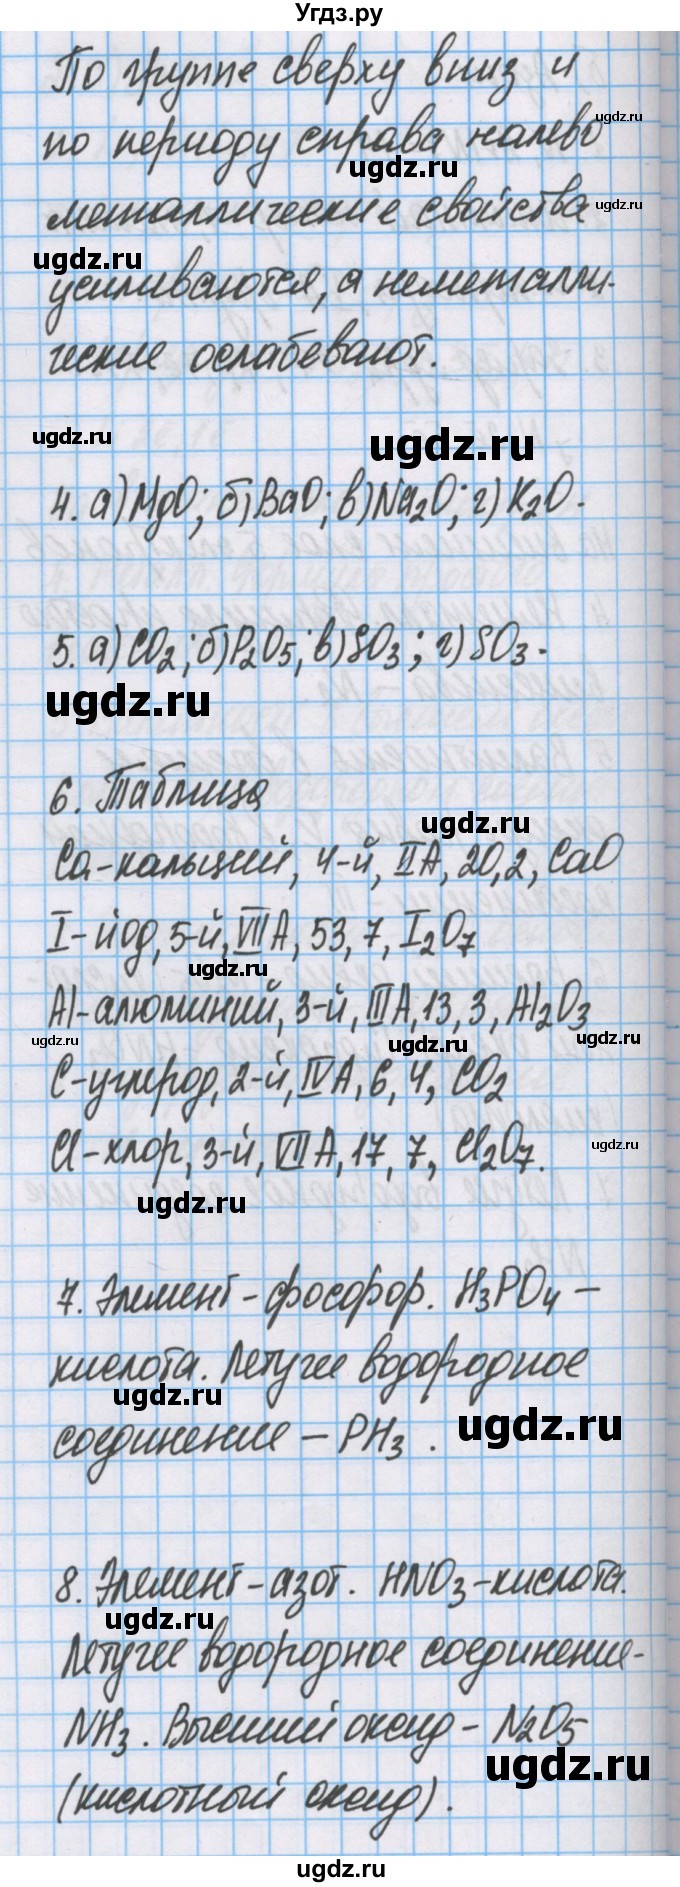 Угдз.ру
По группе сверху вниз и
по периоду справа налево
металлические свойства
усиливаются, а неметалли-
ческие ослабевают.
4. а) MgO; б) BaO; в) Na₂O; г) K₂O.
5. а) CO₂; б) P₂O₅; в) SO₃; г) SO₃.
6. Таблица
Ca-кальций, 4-й, IIA, 20, 2, CaO
I-йод, 5-й, VIIA, 53, 7, I₂O₇
Al-алюминий, 3-й, IIIA, 13, 3, Al₂O₃
C-углерод, 2-й, IVA, 6, 4, CO₂
Cl-хлор, 3-й, VIIA, 17, 7, Cl₂O₇.
7. Элемент - фосфор. H₃PO₄ –
кислота. Летучее водородное
соединение – PH₃.
8. Элемент - азот. HNO₃ - кислота.
Летучее водородное соединение -
NH₃. Высший оксид - N₂O₅
(кислотный оксид).
ugdz.ru